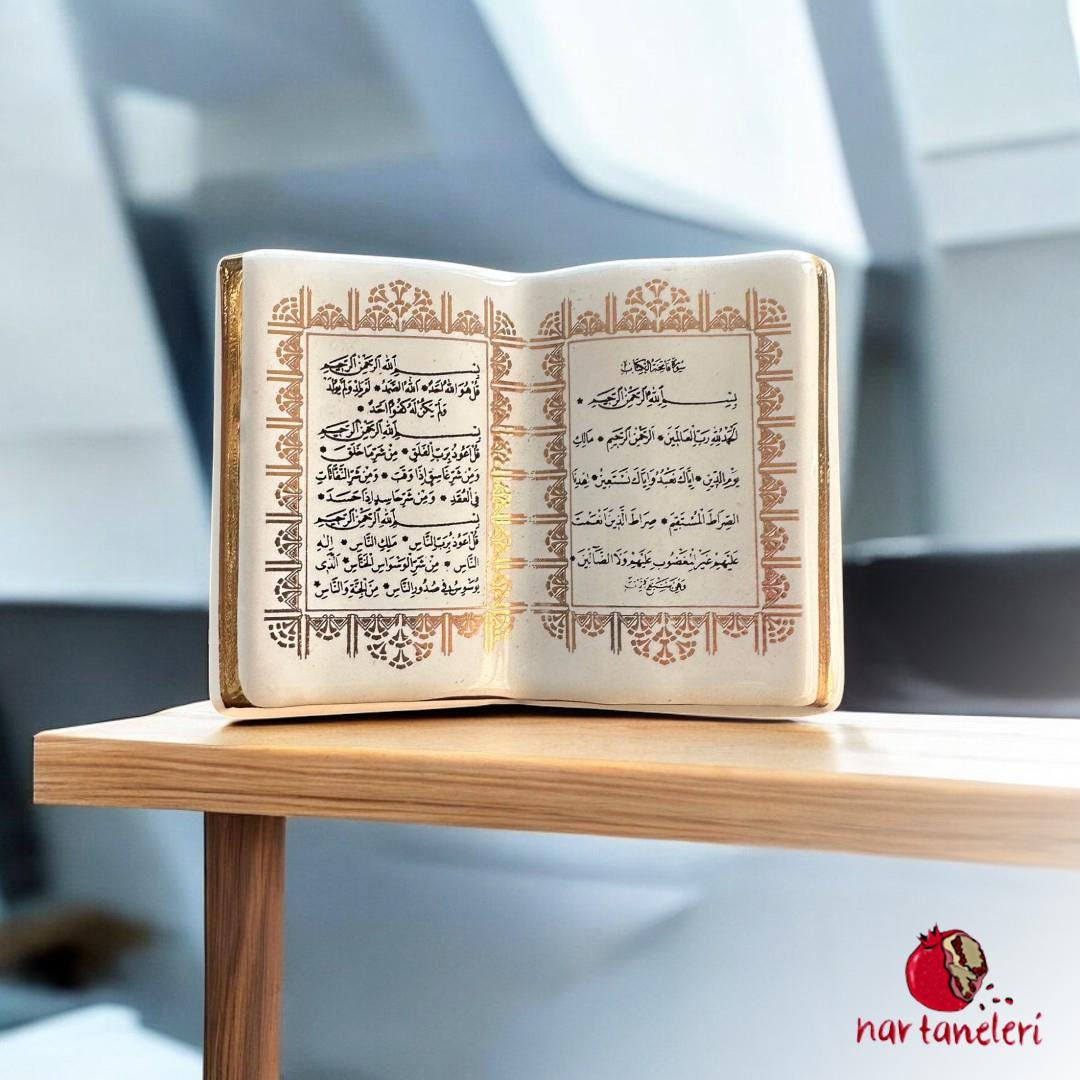 سورة فاتحة الكتاب
بِسْمِ اللهِ الرَّحْمٰنِ الرَّحِيمِ *
اَلْحَمْدُ لِلّٰهِ رَبِّ الْعَالَمِينَ * اَلرَّحْمٰنِ الرَّحِيمِ * مَالِكِ
يَوْمِ الدِّينِ * اِيَّاكَ نَعْبُدُ وَاِيَّاكَ نَسْتَعِينُ * اِهْدِنَا
الصِّرَاطَ الْمُسْتَقِيمَ * صِرَاطَ الَّذِينَ اَنْعَمْتَ
عَلَيْهِمْ غَيْرِ الْمَغْضُوبِ عَلَيْهِمْ وَلَا الضَّالِّينَ *
وهي سبع
بِسْمِ اللهِ الرَّحْمٰنِ الرَّحِيمِ
قُلْ هُوَ اللهُ اَحَدٌ * اَللهُ الصَّمَدُ * لَمْ يَلِدْ وَلَمْ يُولَدْ *
وَلَمْ يَكُنْ لَهُ كُفُوًا اَحَدٌ *
بِسْمِ اللهِ الرَّحْمٰنِ الرَّحِيمِ
قُلْ اَعُوذُ بِرَبِّ الْفَلَقِ * مِنْ شَرِّ مَا خَلَقَ *
وَمِنْ شَرِّ غَاسِقٍ اِذَا وَقَبَ * وَمِنْ شَرِّ النَّفَّاثَاتِ
فِي الْعُقَدِ * وَمِنْ شَرِّ حَاسِدٍ اِذَا حَسَدَ *
بِسْمِ اللهِ الرَّحْمٰنِ الرَّحِيمِ
قُلْ اَعُوذُ بِرَبِّ النَّاسِ * مَلِكِ النَّاسِ * اِلٰهِ
النَّاسِ * مِنْ شَرِّ الْوَسْوَاسِ الْخَنَّاسِ * اَلَّذِي
يُوَسْوِسُ فِي صُدُورِ النَّاسِ * مِنَ الْجِنَّةِ وَالنَّاسِ *
nar taneleri